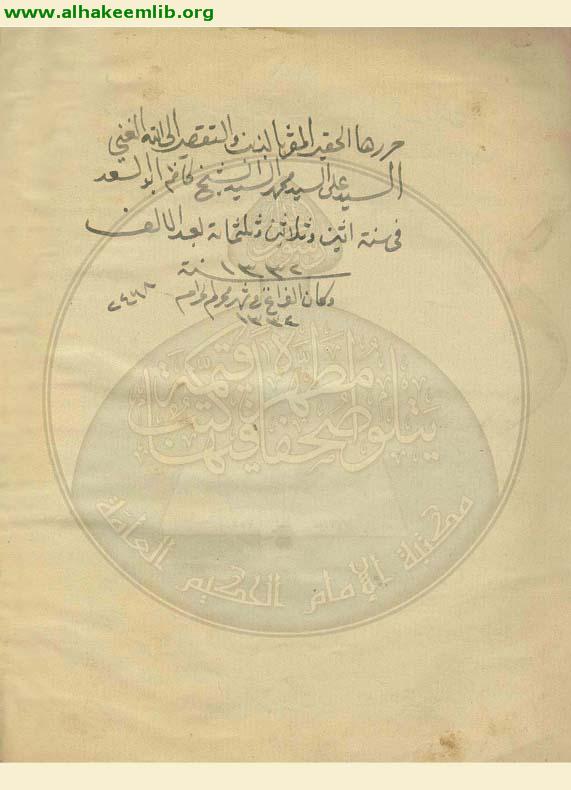 www.alhakeemlib.org
حررها الحقير المقر بالذنب والتقصير الى الله الغني
السيد علي السيد محمد السيد الشيخ كاظم ابو السعد
في سنة اثنين وثلاثين وثلثمائة بعد الالف
١٣٣٢ سنة
وكان الفراغ في شهر محرم الحرام
١٣٣٤
مطهرة فيها كتب قيمة
يتلو صحفا
مكتبة الإمام الحكيم العامة